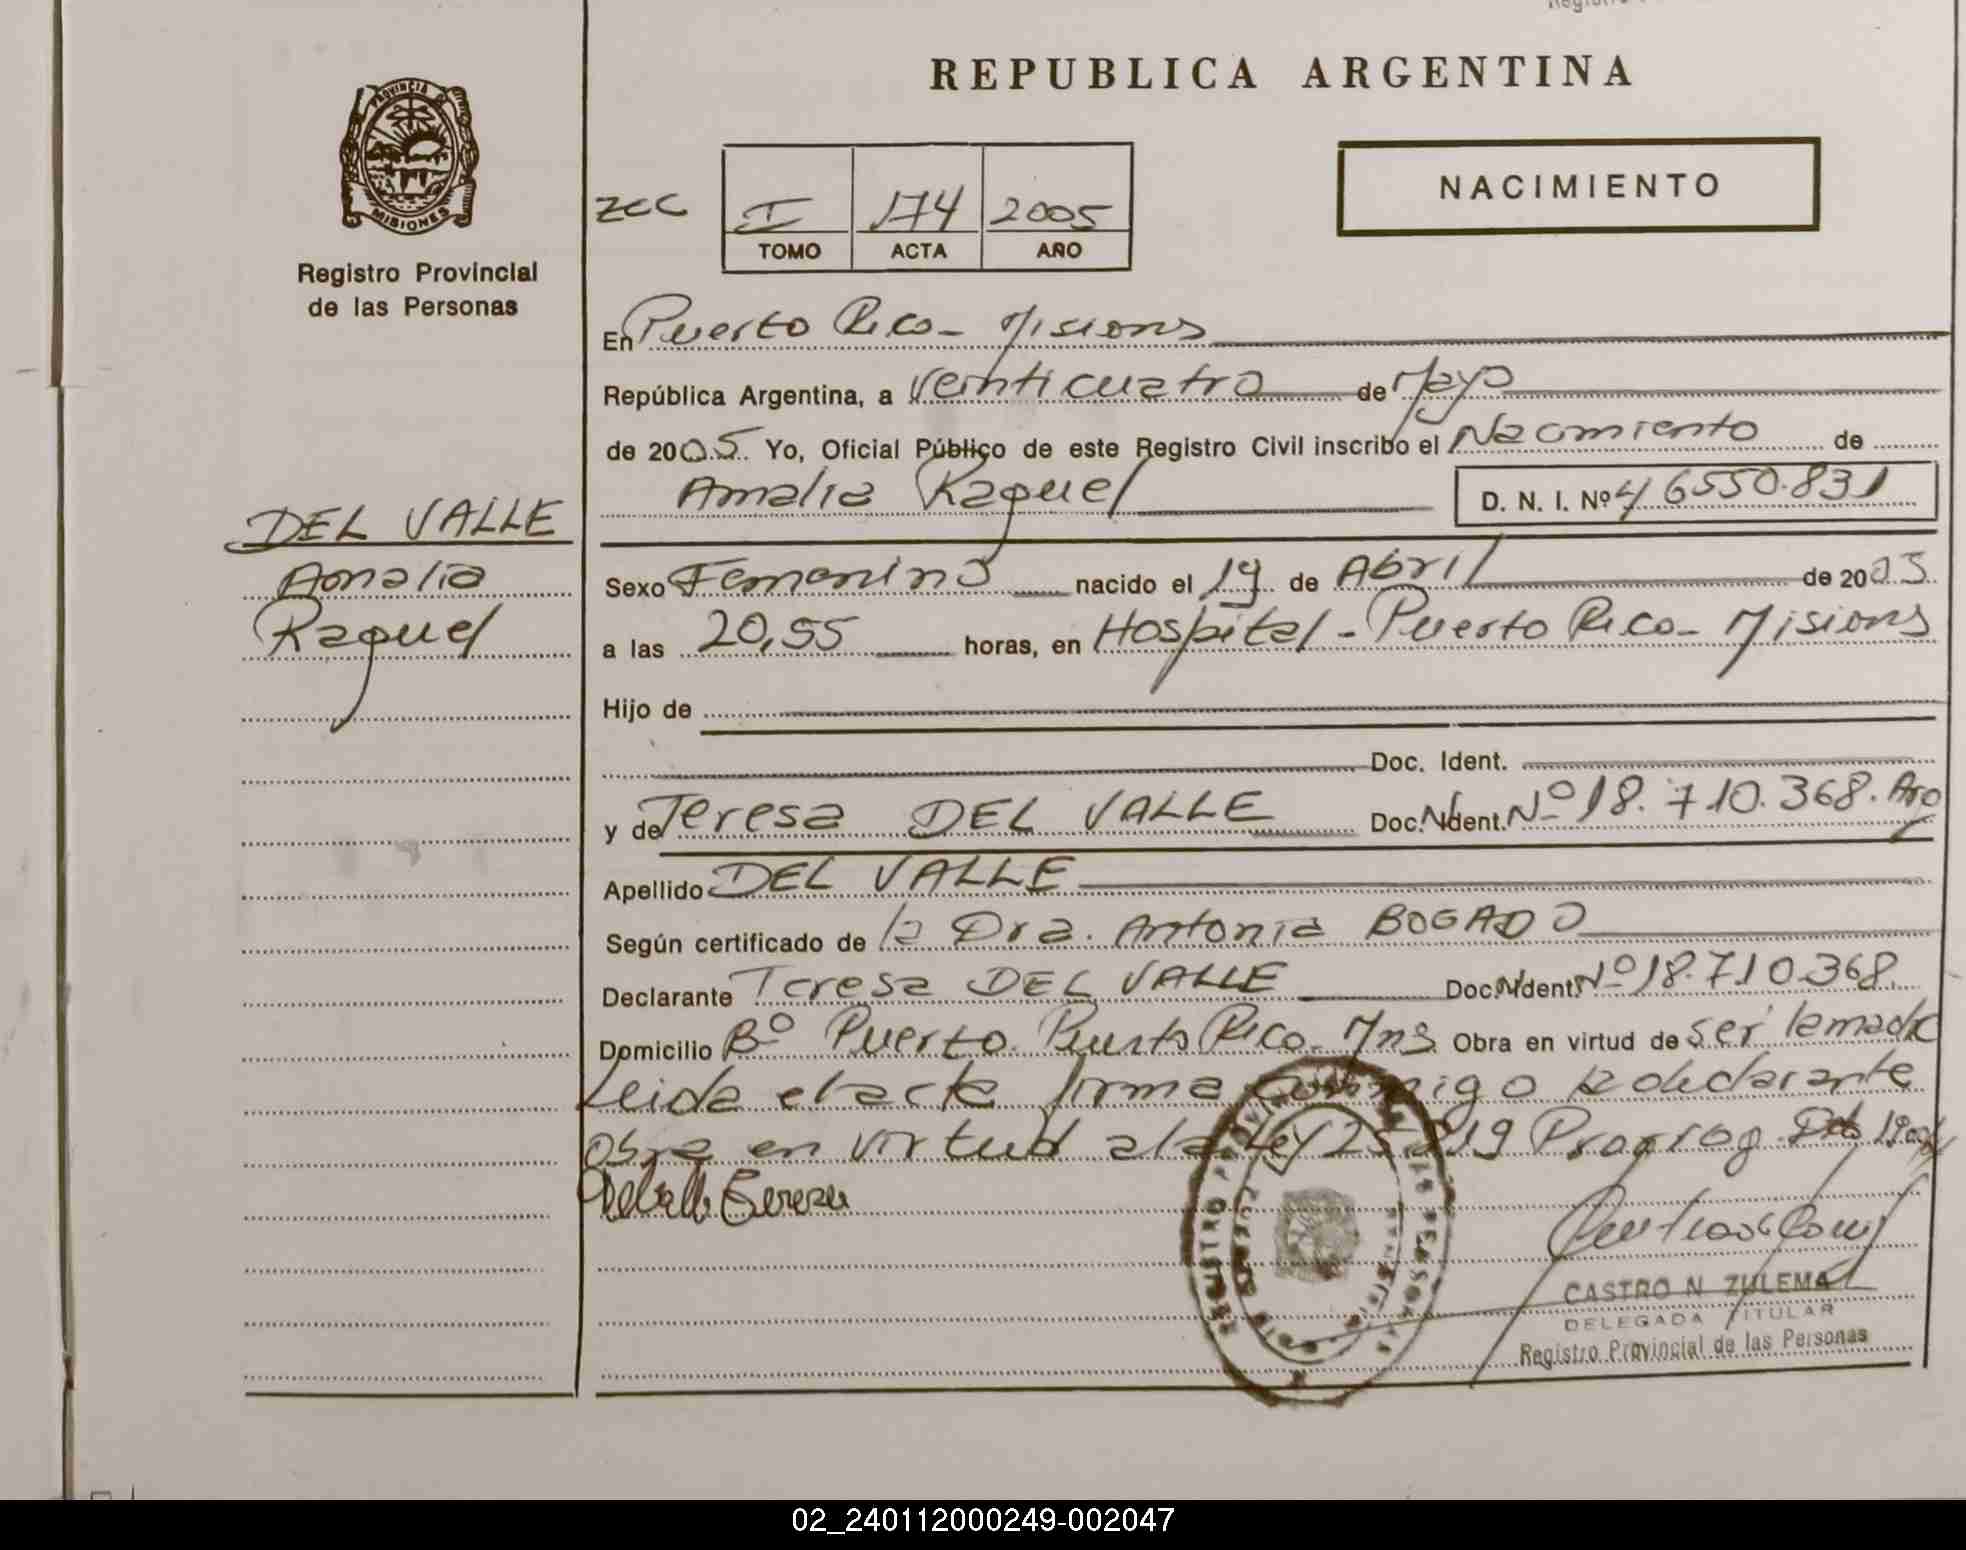 REPUBLICA ARGENTINA
PROVINCIA DE
MISIONES
Registro Provincial
de las Personas
zcc
I 174 2005
TOMO ACTA AÑO
NACIMIENTO
En Puerto Rico - Misiones
República Argentina, a Veinticuatro de Mayo
de 2005. Yo, Oficial Público de este Registro Civil inscribo el Nacimiento de
Amalia Raquel D. N. I. Nº 46550.831
DEL VALLE
Amalia
Raquel
Sexo Femenino nacido el 19 de Abril de 2005
a las 20,55 horas, en Hospital - Puerto Rico - Misiones
Hijo de
Doc. Ident.
y de Teresa DEL VALLE Doc. Ident. Nº 18.710.368. Arg
Apellido DEL VALLE
Según certificado de la Dra. Antonia BOGADO
Declarante Teresa DEL VALLE Doc. Ident. Nº 18.710.368.
Domicilio Bº Puerto Puerto Rico - Mns Obra en virtud de ser la madre
Leida el acta firma conmigo la declarante
obra en virtud a la Ley 25.819
CASTRO N ZULEMA
DELEGADA TITULAR
Registro Provincial de las Personas
02_240112000249-002047